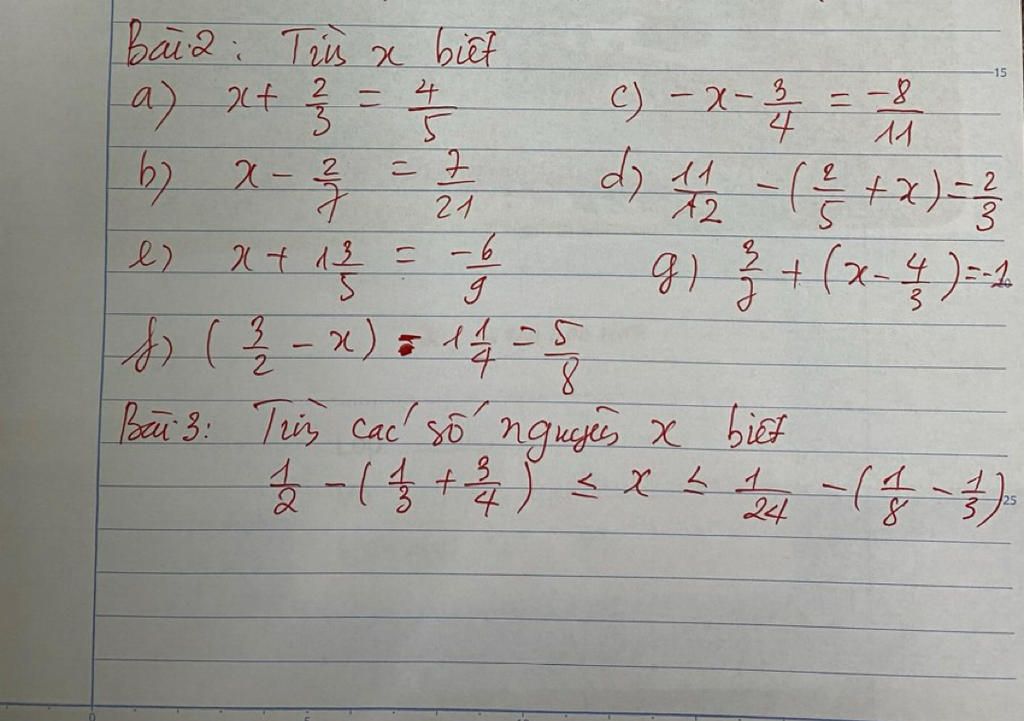 Bài 2 : Tìm x biết
a) x + 2/3 = 4/5 c) -x - 3/4 = -8/11
b) x - 2/7 = 7/21 d) 11/12 - (2/5 + x) = 2/3
e) x + 1 3/5 = -6/9 g) + (x - 4/3) = -1
f) (3/2 - x) - 1 1/4 = 5/8
Bài 3: Tìm các số nguyên x biết
1/2 - (1/3 + 3/4) ≤ x ≤ 1/24 - (1/8 - 1/3)
15
25
0